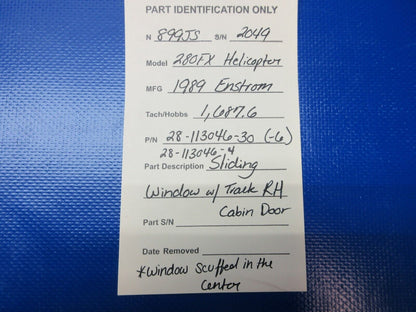 PART IDENTIFICATION ONLY
N 899JS S/N 2049
Model 280FX Helicopter
MFG 1989 Enstrom
Tach/Hobbs 1,687.6
P/N 28-113046-30 (-6)
28-113046-4
Part Description Sliding
Window w/ Track RH
Cabin Door
Part S/N
Date Removed
*Window scuffed in the
Center